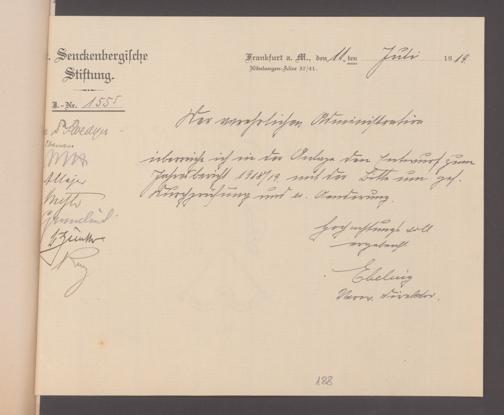 . Senckenbergische
Stiftung.
Frankfurt a. M., den 11. ten Juli 1919
Nibelungen-Allee 37/41.
J.-Nr. 1555
Der verehrlichen Administration
überreiche ich in der Anlage den Entwurf zum
Jahresbericht 1918/19 mit der Bitte um gef.
Durchprüfung und ev. Aenderung.
Hochachtungsvoll
ergebenst
Ebeling
Verw. Direktor.
188